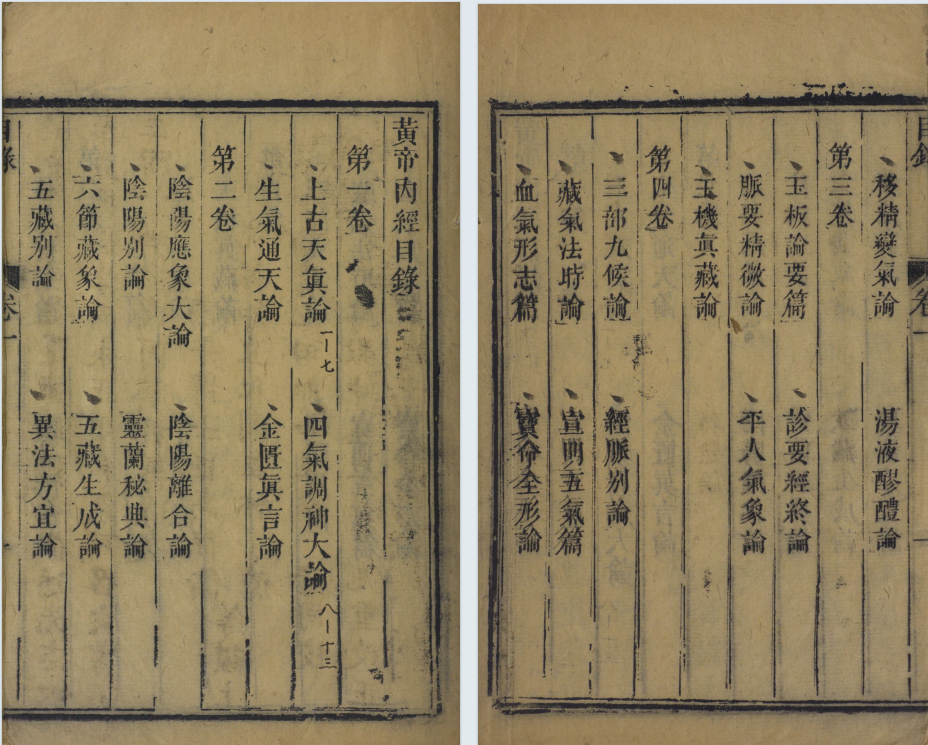 黃帝內經目錄
第一卷
上古天眞論 一—七 四氣調神大論 八—十三
生氣通天論 金匱眞言論
第二卷
陰陽應象大論 陰陽離合論
陰陽別論 靈蘭秘典論
六節藏象論 五藏生成論
五藏別論 異法方宜論
目錄 卷一 一
目錄 卷一 一
移精變氣論 湯液醪醴論
第三卷
玉板論要篇 診要經終論
脈要精微論 平人氣象論
玉機眞藏論
第四卷
三部九候論 經脈別論
藏氣法時論 宣明五氣篇
血氣形志篇 寶命全形論